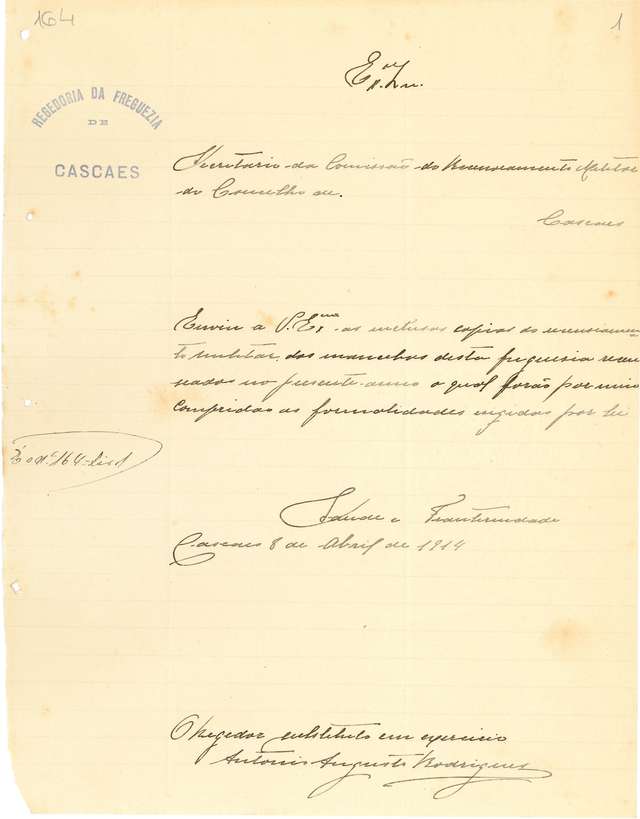 164
1
REGEDORIA DA FREGUEZIA
DE
CASCAES
Exmo Snr.
Secretario da Comissão do Recenseamento Militar
do Concelho de.
Cascaes
Envio a V. Exma as inclusas copias do recenseamen-
to militar, dos mancebos desta freguesia recen-
seados no presente anno o qual forão por mim
compridas as formalidades exigidas por lei
É o nº 164 - Liv 1
Saude e Fraternidade
Cascaes 8 de Abril de 1914
O Regedor substituto em exercicio
Antonio Augusto Rodrigues